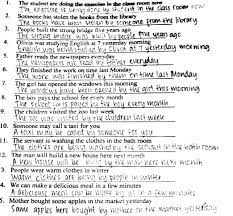 1. The student are doing the exercise in the class room now
The exercise is being done by student in the class room now
2. Someone has stolen the books from the library
The books have been stolen by someone from the library
3. People built the strong bridge five years ago
The strong bridge was built by people five years ago
4. Olivia was studying English at 7 yesterday morning
English was being studied by Olivia at 7 yesterday morning
5. Father reads the newspapers everyday
The newspapers are read by father everyday
6. They finished the work on time last Monday
The work was finished by them on time last Monday
7. The girl has opened the windows this morning
The windows have been opened by the girl this morning
8. The boy pays the school fee every month
The school fee is payed by the boy every month
9. The children visited the zoo last week
The zoo was visited by the children last week
10. Someone may call a taxi for you
A taxi may be called by someone for you
11. The servant is washing the clothes in the bath room
The clothes are being washed by the servant in the bath room
12. The man will build a new house here next month
A new house will be built by the man here next month
13. People wear warm clothes in winter
Warm clothes are being by people in winter
14. We can make a delicious meal in a few minutes
A delicious meal can be made by us in a few minutes
15. Mother bought some apples in the market yesterday
Some apples were bought by mother in the market yesterday